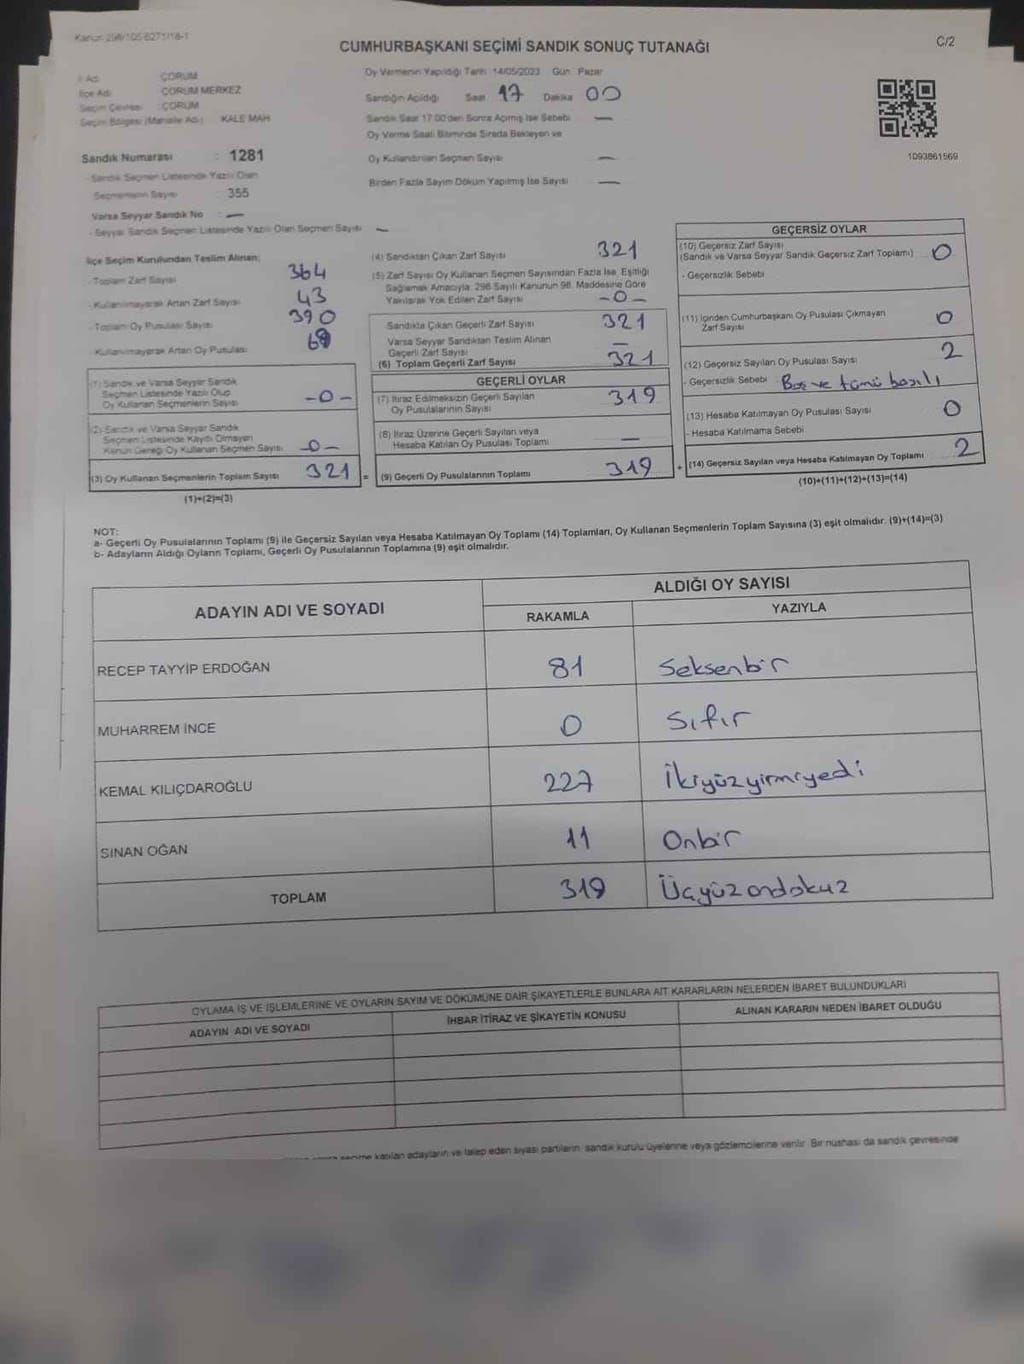 Kanun 298/105-6271/18-1
C/2
CUMHURBAŞKANI SEÇİMİ SANDIK SONUÇ TUTANAĞI
İl Adı ÇORUM
İlçe Adı ÇORUM MERKEZ
Seçim Çevresi :ÇORUM
Seçim Bölgesi (Mahalle Adı) KALE MAH
Sandık Numarası : 1281
- Sandık Seçmen Listesinde Yazılı Olan
Seçmenlerin Sayısı 355
Varsa Seyyar Sandık No : —
- Seyyar Sandık Seçmen Listesinde Yazılı Olan Seçmen Sayısı —
Oy Vermenin Yapıldığı Tarih :14/05/2023 Gün: Pazar
Sandığın Açıldığı Saat 17 Dakika 00
Sandık Saat 17:00'den Sonra Açılmış İse Sebebi —
Oy Verme Saati Bitiminde Sırada Bekleyen ve
Oy Kullandırılan Seçmen Sayısı —
Birden Fazla Sayım Döküm Yapılmış İse Sayısı —
1093861569
İlçe Seçim Kurulundan Teslim Alınan;
- Toplam Zarf Sayısı 364
- Kullanılmayarak Artan Zarf Sayısı 43
- Toplam Oy Pusulası Sayısı 390
- Kullanılmayarak Artan Oy Pusulası 69
(1) Sandık ve Varsa Seyyar Sandık
Seçmen Listesinde Yazılı Olup
Oy Kullanan Seçmenlerin Sayısı -0-
(2) Sandık ve Varsa Seyyar Sandık
Seçmen Listesinde Kayıtlı Olmayan
Kanun Gereği Oy Kullanan Seçmen Sayısı -0-
(3) Oy Kullanan Seçmenlerin Toplam Sayısı 321
(1)+(2)=(3)
(4) Sandıktan Çıkan Zarf Sayısı 321
(5) Zarf Sayısı Oy Kullanan Seçmen Sayısından Fazla İse, Eşitliği
Sağlamak Amacıyla, 298 Sayılı Kanunun 98. Maddesine Göre
Yakılarak Yok Edilen Zarf Sayısı -0-
Sandıkta Çıkan Geçerli Zarf Sayısı 321
Varsa Seyyar Sandıktan Teslim Alınan
Geçerli Zarf Sayısı —
(6) Toplam Geçerli Zarf Sayısı 321
GEÇERLİ OYLAR
(7) İtiraz Edilmeksizin Geçerli Sayılan
Oy Pusulalarının Sayısı 319
(8) İtiraz Üzerine Geçerli Sayılan veya
Hesaba Katılan Oy Pusulası Toplamı —
= (9) Geçerli Oy Pusulalarının Toplamı 319
GEÇERSİZ OYLAR
(10) Geçersiz Zarf Sayısı
(Sandık ve Varsa Seyyar Sandık Geçersiz Zarf Toplamı) 0
- Geçersizlik Sebebi
(11) İçinden Cumhurbaşkanı Oy Pusulası Çıkmayan
Zarf Sayısı 0
(12) Geçersiz Sayılan Oy Pusulası Sayısı 2
- Geçersizlik Sebebi Boş ve tümü basılı
(13) Hesaba Katılmayan Oy Pusulası Sayısı 0
- Hesaba Katılmama Sebebi
+ (14) Geçersiz Sayılan veya Hesaba Katılmayan Oy Toplamı 2
(10)+(11)+(12)+(13)=(14)
NOT:
a- Geçerli Oy Pusulalarının Toplamı (9) ile Geçersiz Sayılan veya Hesaba Katılmayan Oy Toplamı (14) Toplamları, Oy Kullanan Seçmenlerin Toplam Sayısına (3) eşit olmalıdır. (9)+(14)=(3)
b- Adayların Aldığı Oyların Toplamı, Geçerli Oy Pusulalarının Toplamına (9) eşit olmalıdır.
ADAYIN ADI VE SOYADI
ALDIĞI OY SAYISI
RAKAMLA YAZIYLA
RECEP TAYYİP ERDOĞAN 81 Seksenbir
MUHARREM İNCE 0 Sıfır
KEMAL KILIÇDAROĞLU 227 İkiyüzyirmiyedi
SİNAN OĞAN 11 Onbir
TOPLAM 319 Üçyüzondokuz
OYLAMA İŞ VE İŞLEMLERİNE VE OYLARIN SAYIM VE DÖKÜMÜNE DAİR ŞİKAYETLERLE BUNLARA AİT KARARLARIN NELERDEN İBARET BULUNDUKLARI
ADAYIN ADI VE SOYADI İHBAR İTİRAZ VE ŞİKAYETİN KONUSU ALINAN KARARIN NEDEN İBARET OLDUĞU
seçime katılan adayların ve talep eden siyasi partilerin sandık kurulu üyelerine veya gözlemcilerine verilir. Bir nüshası da sandık çevresinde